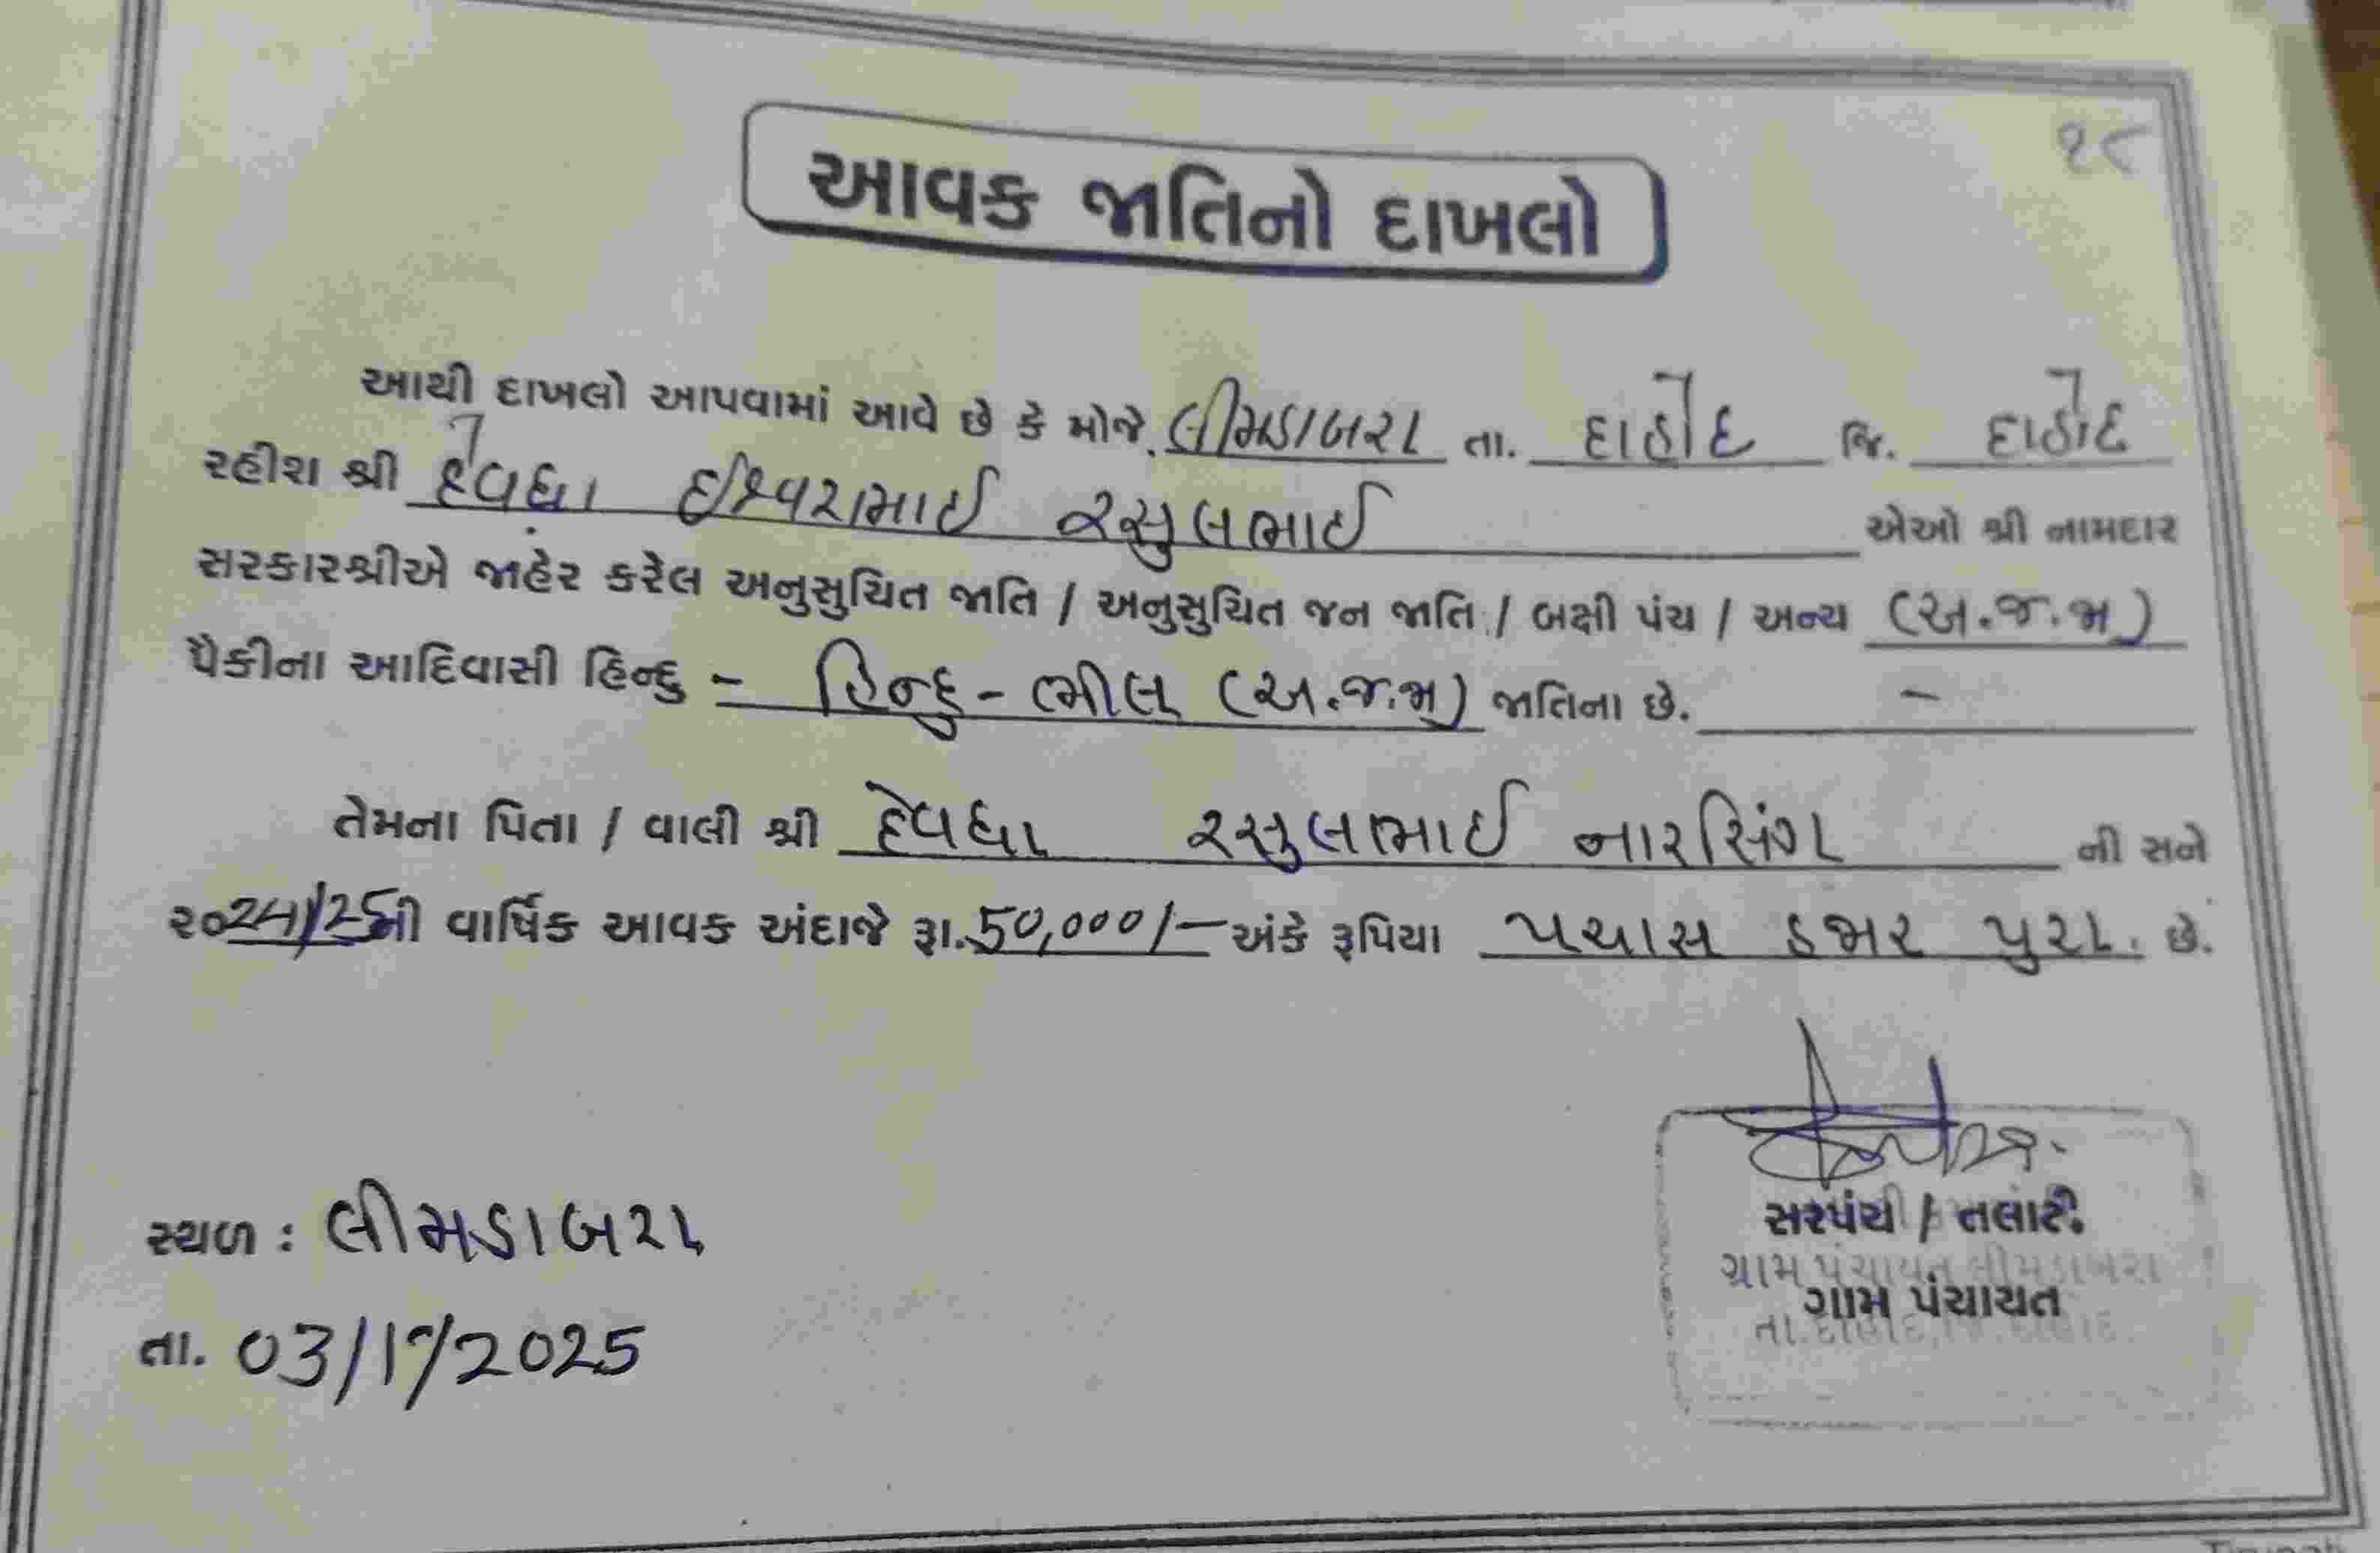 ૧૮
આવક જાતિનો દાખલો
આથી દાખલો આપવામાં આવે છે કે મોજે. લીમડાબરા તા. દાહોદ જિ. દાહોદ
રહીશ શ્રી દેવધા ઈશ્વરભાઈ રસુલભાઈ એઓ શ્રી નામદાર
સરકારશ્રીએ જાહેર કરેલ અનુસુચિત જાતિ / અનુસુચિત જન જાતિ / બક્ષી પંચ / અન્ય (અ.જ.જા)
પૈકીના આદિવાસી હિન્દુ - હિન્દુ - ભીલ (અ.જ.જા) જાતિના છે. -
તેમના પિતા / વાલી શ્રી દેવધા રસુલભાઈ નારસિંગ ની સને
૨૦24/25ની વાર્ષિક આવક અંદાજે રૂા. 50,000/- અંકે રૂપિયા પચાસ હજાર પુરા. છે.
સરપંચ / તલાટી
ગ્રામ પંચાયત લીમડાબરા
ગ્રામ પંચાયત
તા.દાહોદ,જિ.દાહોદ
સ્થળ : લીમડાબરા
તા. 03/11/2025